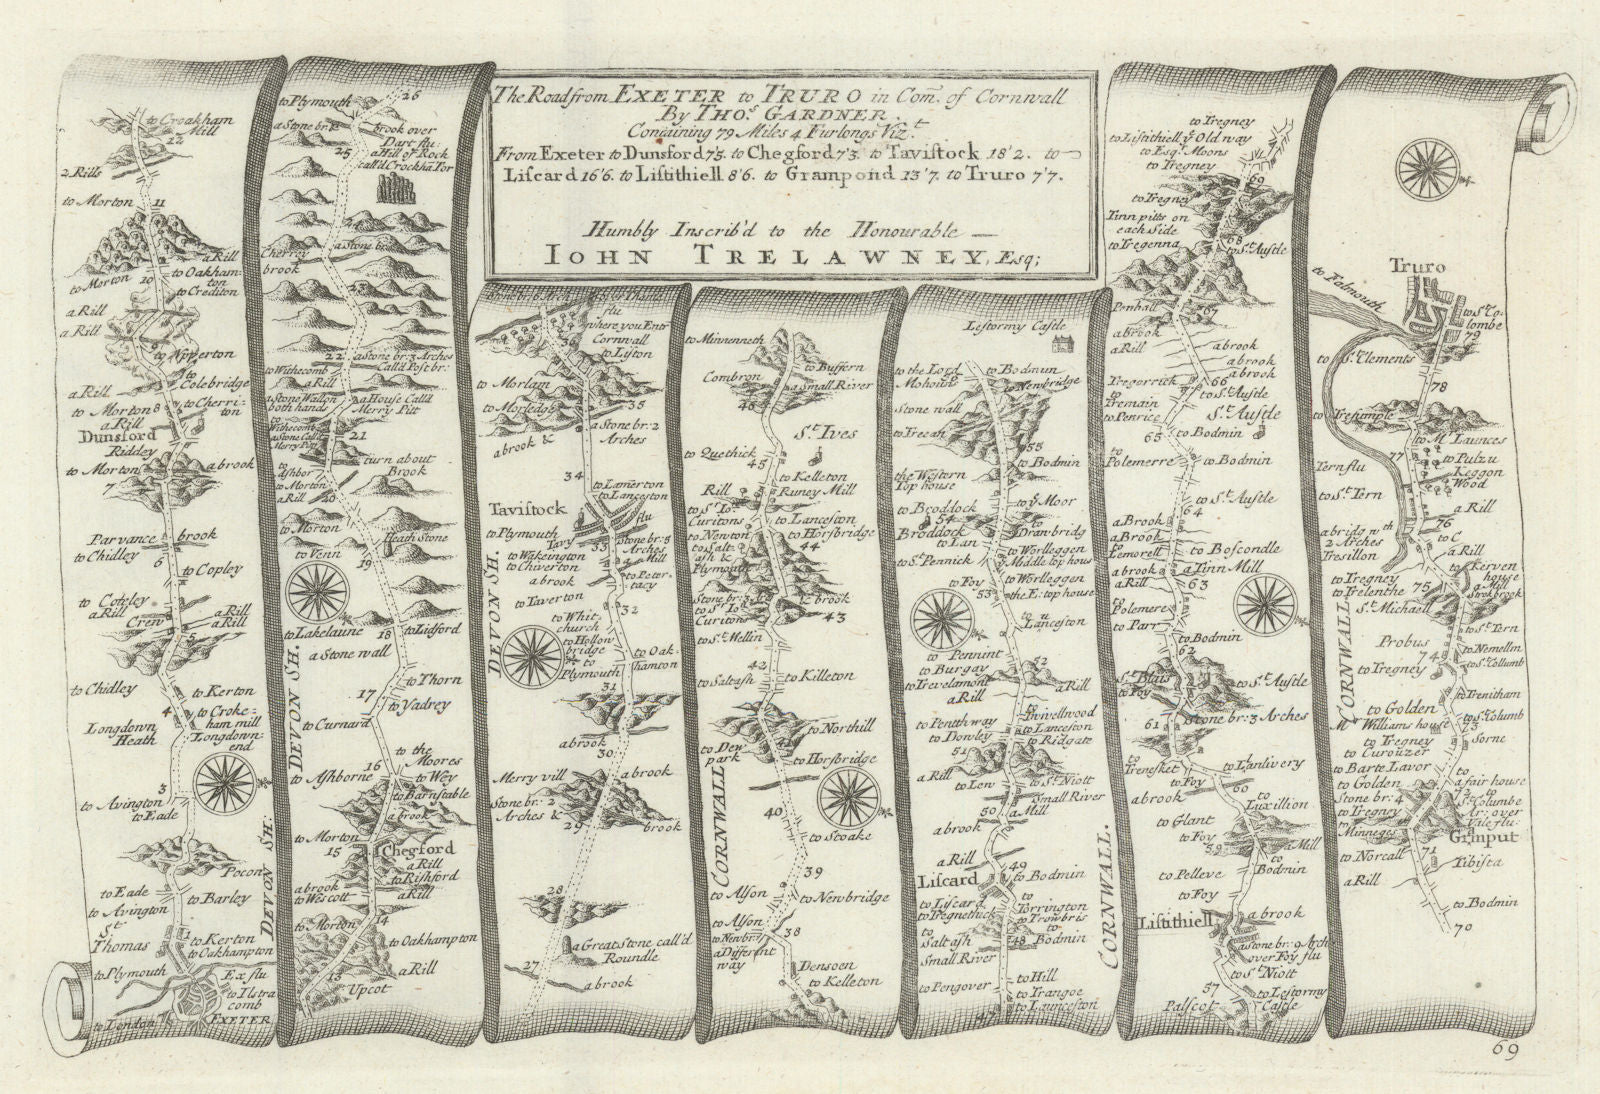 The Road from EXETER to TRURO in Com. of Cornwall
By THO.s GARDNER.
Containing 79 Miles 4 Furlongs Viz.t
From Exeter to Dunsford 7'5. to Chegford 7'3. to Tavistock 18'2. to
Liscard 16'6. to Listithiell 8'6. to Grampond 13'7. to Truro 7'7.
Humbly Inscrib'd to the Honourable
IOHN TRELAWNEY, Esq;
to Croakham
Mill
22
2 Rills
to Morton
11
a Rill
to Oakham-
ton
to Morton
10
to Crediton
a Rill
a Rill
9
to Upperton
to Colebridge
a Rill
to Morton 8
to Cherri-
ton
a Rill
Dunsford
Riddey
to Morton
a brook
7
Parvance
brook
to Chidley
6
to Copley
to Coteley
a Rill
a Rill
Crew
a Rill
5
to Chidley
to Kerton
4
to Croke-
ham mill
Longdown
Heath
Longdown-
end
3
to Avington
to Eade
Pocon
to Eade
to Barley
to Avington
St.
Thomas
1
to Kerton
to Oakhampton
to Plymouth
Ex flu
to Ilstra
comb
to London
EXETER
DEVON SH:
26
to Plymouth
a Stone br:
brook over
Dart flu
25
a Hill of Rock
call'd Crockha Tor
a Stone br.
Cherrey
brook
23
22
a Stone br: 3 Arches
Call'd Post br:
to Withecomb
a Rill
a Stone Wall on
both hands
a House Call'd
Merry Pitt
to
Withscomb
a Stone Call'd
Merry Pitt
21
to
Ashbor
turn about
Brook
to Morton
a Rill
20
to Morton
Heath Stone
to Venn
19
to Lakelaune
18
to Lidford
a Stone wall
17
to Thorn
to Yadrey
to Curnard
to the
Moores
16
to Ashborne
to Wey
to Barnstable
a brook
to Morton
15
Chegford
a Rill
to Rishford
a brook
a Rill
to Wiscott
14
to Morton
to Oakhampton
13
a Rill
Upcot
DEVON SH.
Stone br: 8 Arch
over Thamar
flu
where you Entr
Cornwall
36
to Liston
to Morlam
to Morledge
35
a brook &
a Stone br: 2
Arches
34
to Lamerton
to Lanceston
Tavistock
flu
to Plymouth
Tavy
33
Stone br: 8
Arches
a Mill
to Wakington
to Chiverton
a brook
to Peter-
tacy
to Taverton
32
to Whit-
church
to Hollow
bridge
to
Plymouth
to Oak-
hamton
31
a brook
30
Merry vill
a brook
Stone br: 2
Arches &
29
brook
28
a Great Stone call'd
Roundle
27
a brook
DEVON SH.
to Minnenneth
to Buffern
Combron
a Small River
46
St. Ives
to Quethick
45
to Kelleton
Rill
Runey Mill
to St. Io:
Curitons
to Lanceston
to Newton
to Horsbridge
to Salt-
ash
44
Plymouth
Stone br: 3
to St. Io:
Curitons
brook
43
to St. Wellin
42
to Killeton
to Saltash
to Northill
to Dew
park
41
to Horsbridge
40
to Stoake
39
to Alson
to Newbridge
to Alson
38
to Newbr:
a Different
way
Densoen
to Kelleton
CORNWALL
Lestormy Castle
to the Lord
Mohouns
to Bodmun
to Newbridge
Stone wall
to Trecan
55
to Bodmin
the Western
Top house
to ye Moor
to Broddock
54
to
Dranbridg
Broddock
to Lan
to Worlleggen
Middle top hous
to St. Pennick
to Foy
to Worlleggen
the E: top house
53
to
Lanceston
to Pennint
52
to Burgay
to Trevelmont
a Rill
a Rill
to Trivellwood
to Pentthway
to Lanceston
to Dowley
to Ridgate
51
a Rill
to St. Niott
to Lew
Small River
50
a Mill
a brook
a Rill
49
to Bodmin
Liscard
to Liscard
to Tregnethick
to
Torrington
to Trowbris
to
Saltash
48
to
Bodmin
Small River
to Hill
to Pengover
to Trangoe
to Launceston
47
CORNWALL.
to Tregney
to Listithiell ye Old way
to Esqr. Moons
to Tregney
69
to Tregney
Tinn pitts on
each Side
68
to Tregenna
to St. Austle
Penhall
67
a brook
a Rill
a brook
a brook
Tregorrick
66
to St. Austle
to
Tremain
to Penrice
St. Austle
65
to Bodmin
to
Polemerre
to Bodmin
to St. Austle
64
a Brook
a Brook
to
Lemorell
to Boscondle
a brook
a Tinn Mill
a Rill
63
to
Polemere
to Parr
to Bodmin
62
St. Blais
to St. Austle
to Foy
61
Stone br: 3 Arches
to
Trenesket
to Lanlivery
to Foy
60
a brook
to
Luxillion
to Glant
to Foy
59
a Mill
to
Bodmin
to Pelleve
to Foy
Listithiell
a brook
a Stone br: 9 Arch
over Foy flu
to St. Niott
57
Palscot
to Lestormy
Castle
CORNWALL
to Falmouth
Truro
to St. Co-
lombe
79
to St. Clements
78
to Tresimple
to Mr. Launces
77
to Pulzu
Keggon
Wood
Tern flu
to St. Tern
a Rill
76
a bridg wth
2 Arches
to C
Tresillon
a Rill
to Tregney
to Trelenthe
75
Kerven
house
a Mill
St. Michaell
to St. Tern
Probus
74
to Nemellin
to St. Collumb
to Tregney
to Trenitham
to Golden
Mr. Williams house
to St. Columb
73
to Tregney
Sorne
to Curouzer
to Barte Lavor
a fair house
to Golden
72
Stone br: 4
Ar: over
Vale flu
to St. Columbe
to Tregney
to
Minneges
Gramput
to Norcalt
71
Tibista
a Rill
to Bodmin
70
69